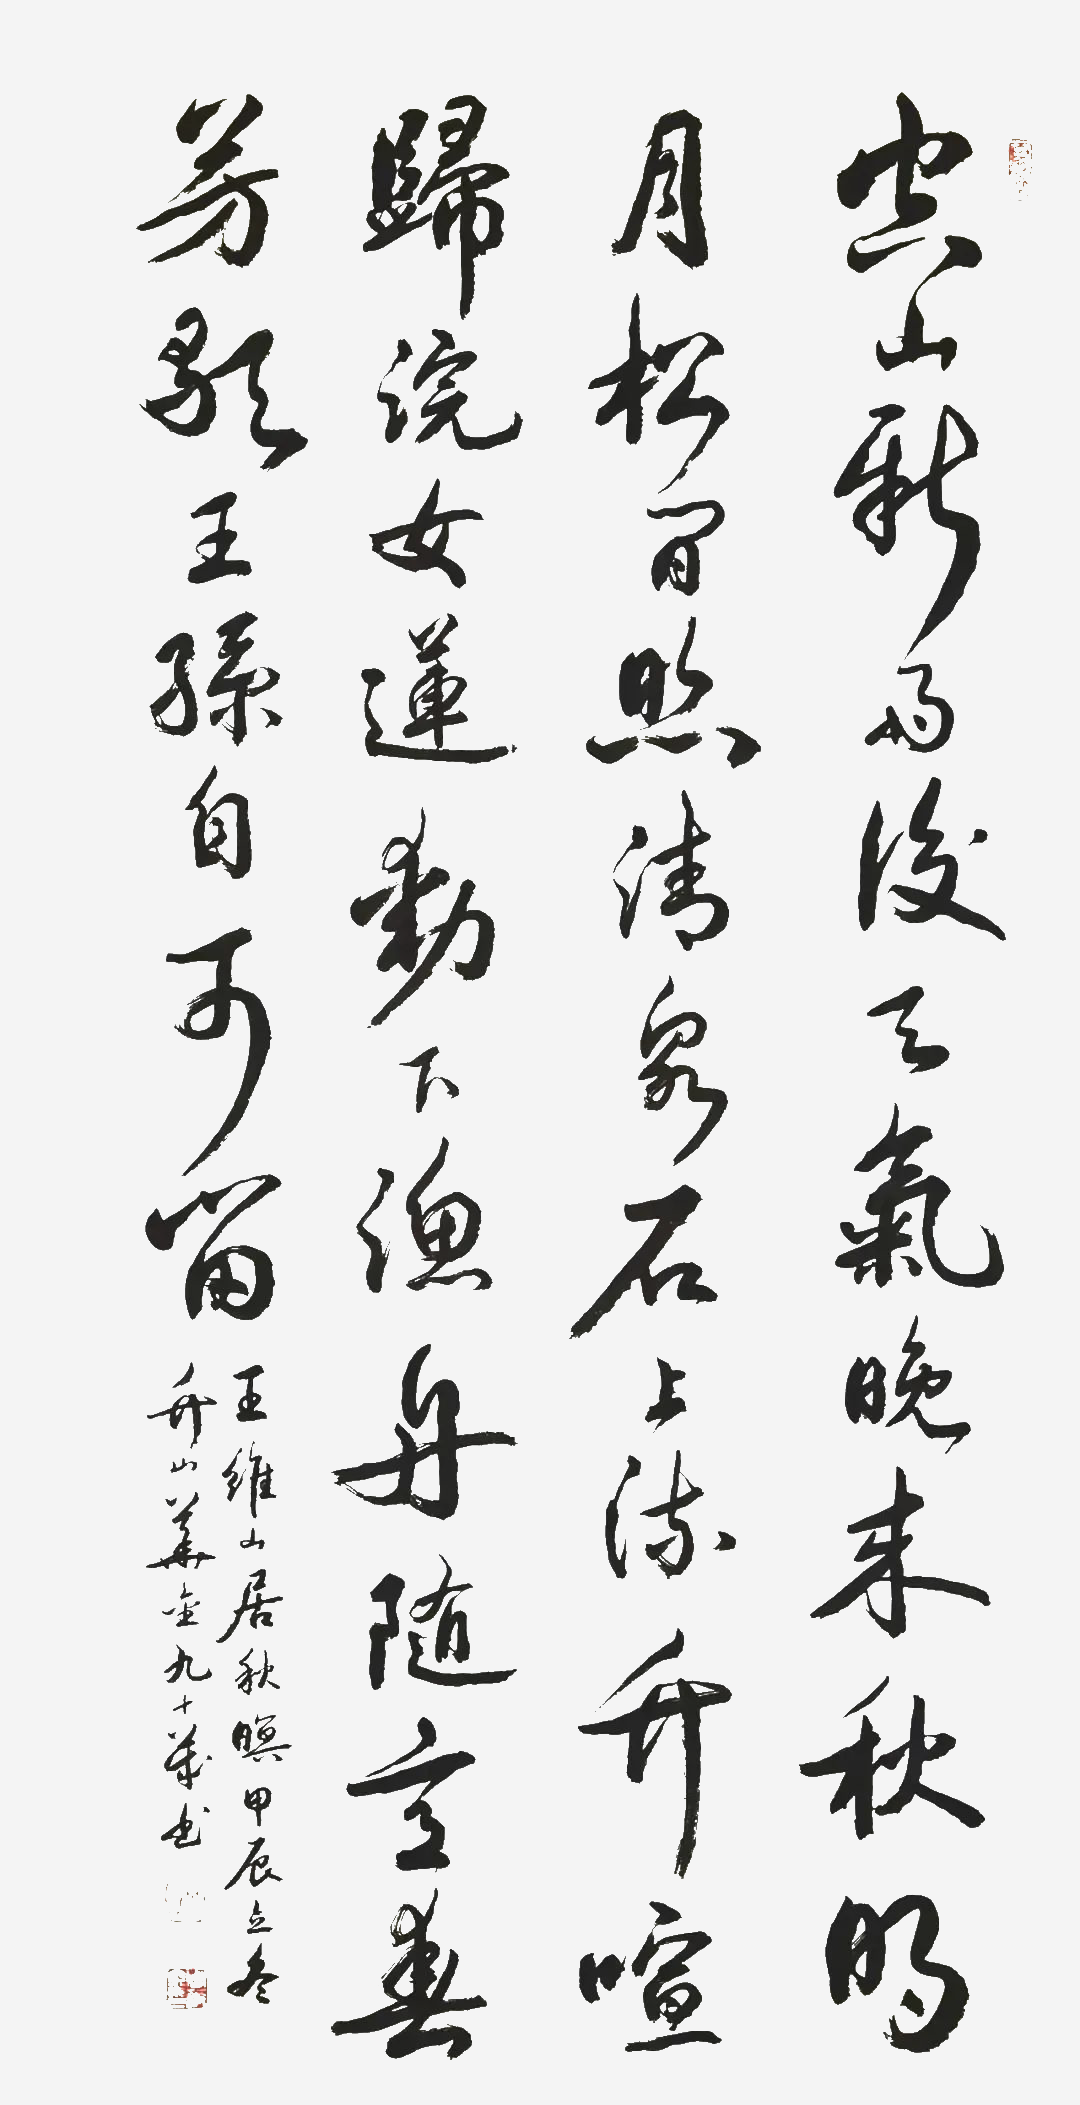 空山新雨後天氣晚来秋明
月松間照清泉石上流竹喧
歸浣女蓮動下漁舟随意春
芳歇王孫自可留
王維山居秋暝甲辰立冬
山華金九十歲书